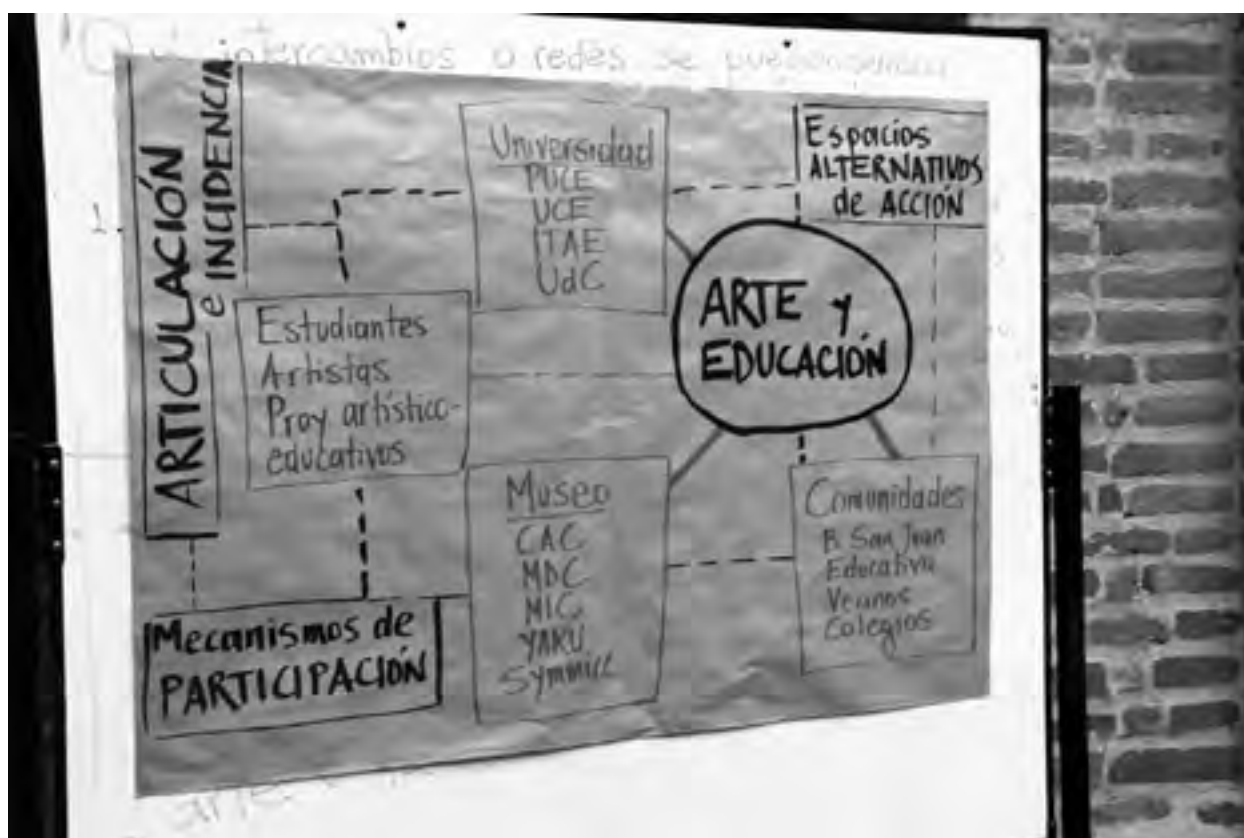 intercambios o redes se
ARTICULACIÓN
e INCIDENCIA
Universidad
PUCE
UCE
ITAE
UdC
Espacios
ALTERNATIVOS
de ACCIÓN
1.
Estudiantes
Artistas
Proy artístico-
educativos
ARTE y
EDUCACIÓN
Museo
CAC
MDC
MIC
YAKU
Comunidades
B. San Juan
Educativa
Vecinos
Colegios
Mecanismos de
PARTICIPACIÓN